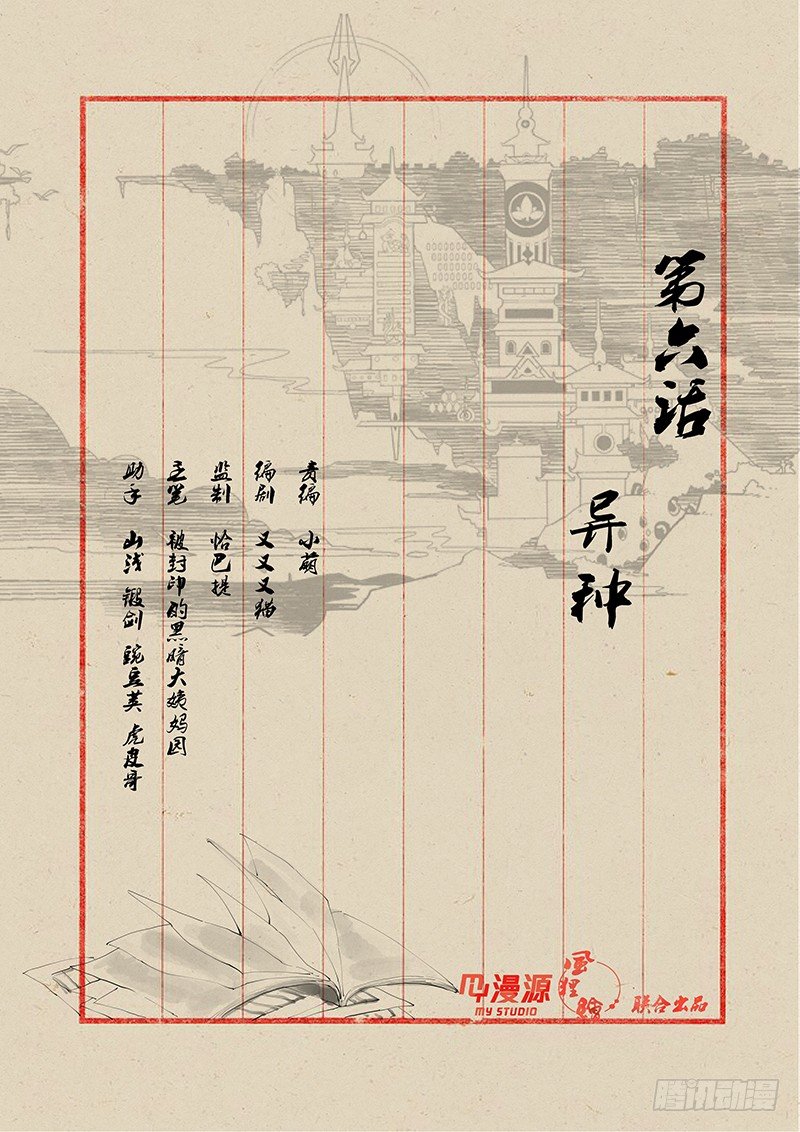 第六话
异种
责编 小萌
编剧 又又又猫
监制 恰巴提
主笔 被封印的黑暗大姨妈园
助手 山浅 锻剑 豌豆荚 虎皮哥
漫源
MY STUDIO
风狸
联合出品
腾讯动漫